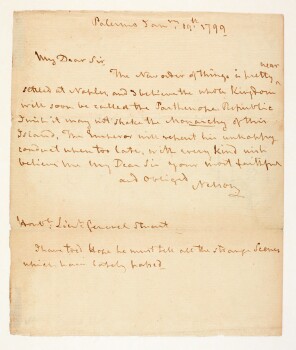 Palermo Jany. 19th 1799
My Dear Sir.
near
The New order of things is pretty
setled at Naples, and I believe the whole Kingdom
will soon be called the Parthenope Republic
I wish it may not shake the Monarchy of this
Island, The Emperor will repent his unhappy
conduct when too late, with every kind wish
believe me My Dear Sir your most faithful
and obliged Nelson
Honble. Lieut. General Stuart
I have told Hope he must tell all the strange Scenes
which have lately passed